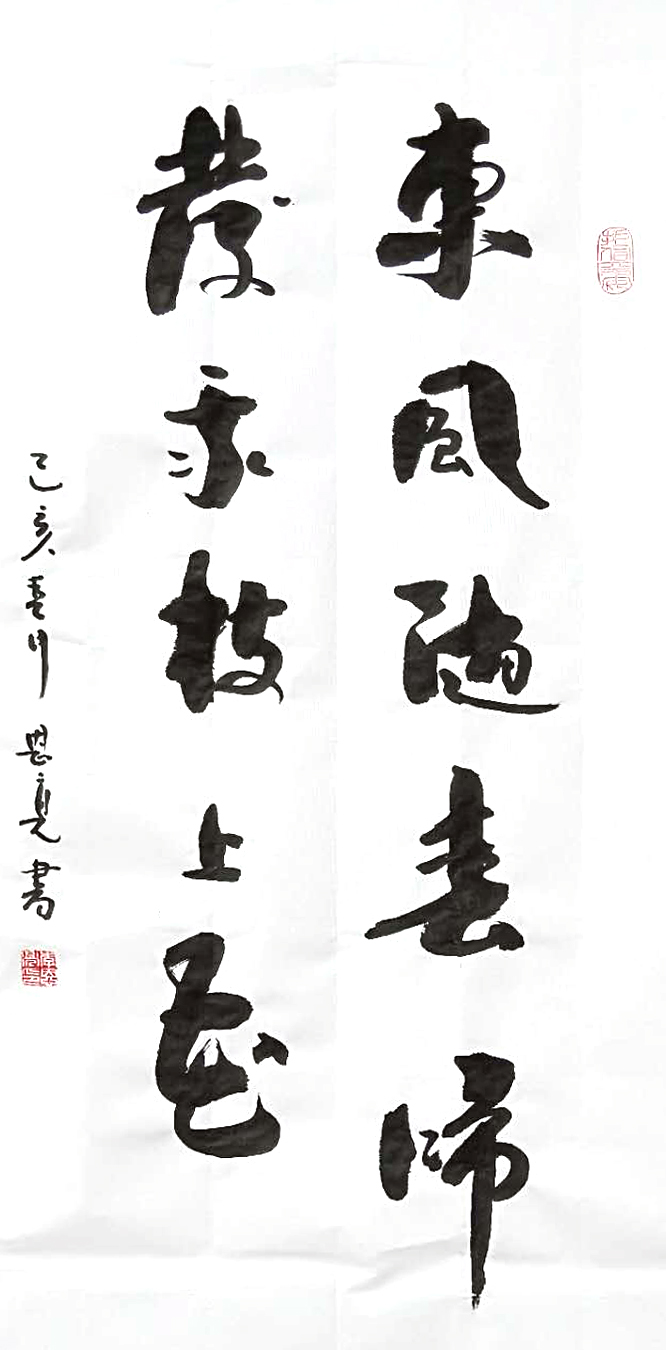 東風隨春歸
發我枝上花
己亥春月恩亮書